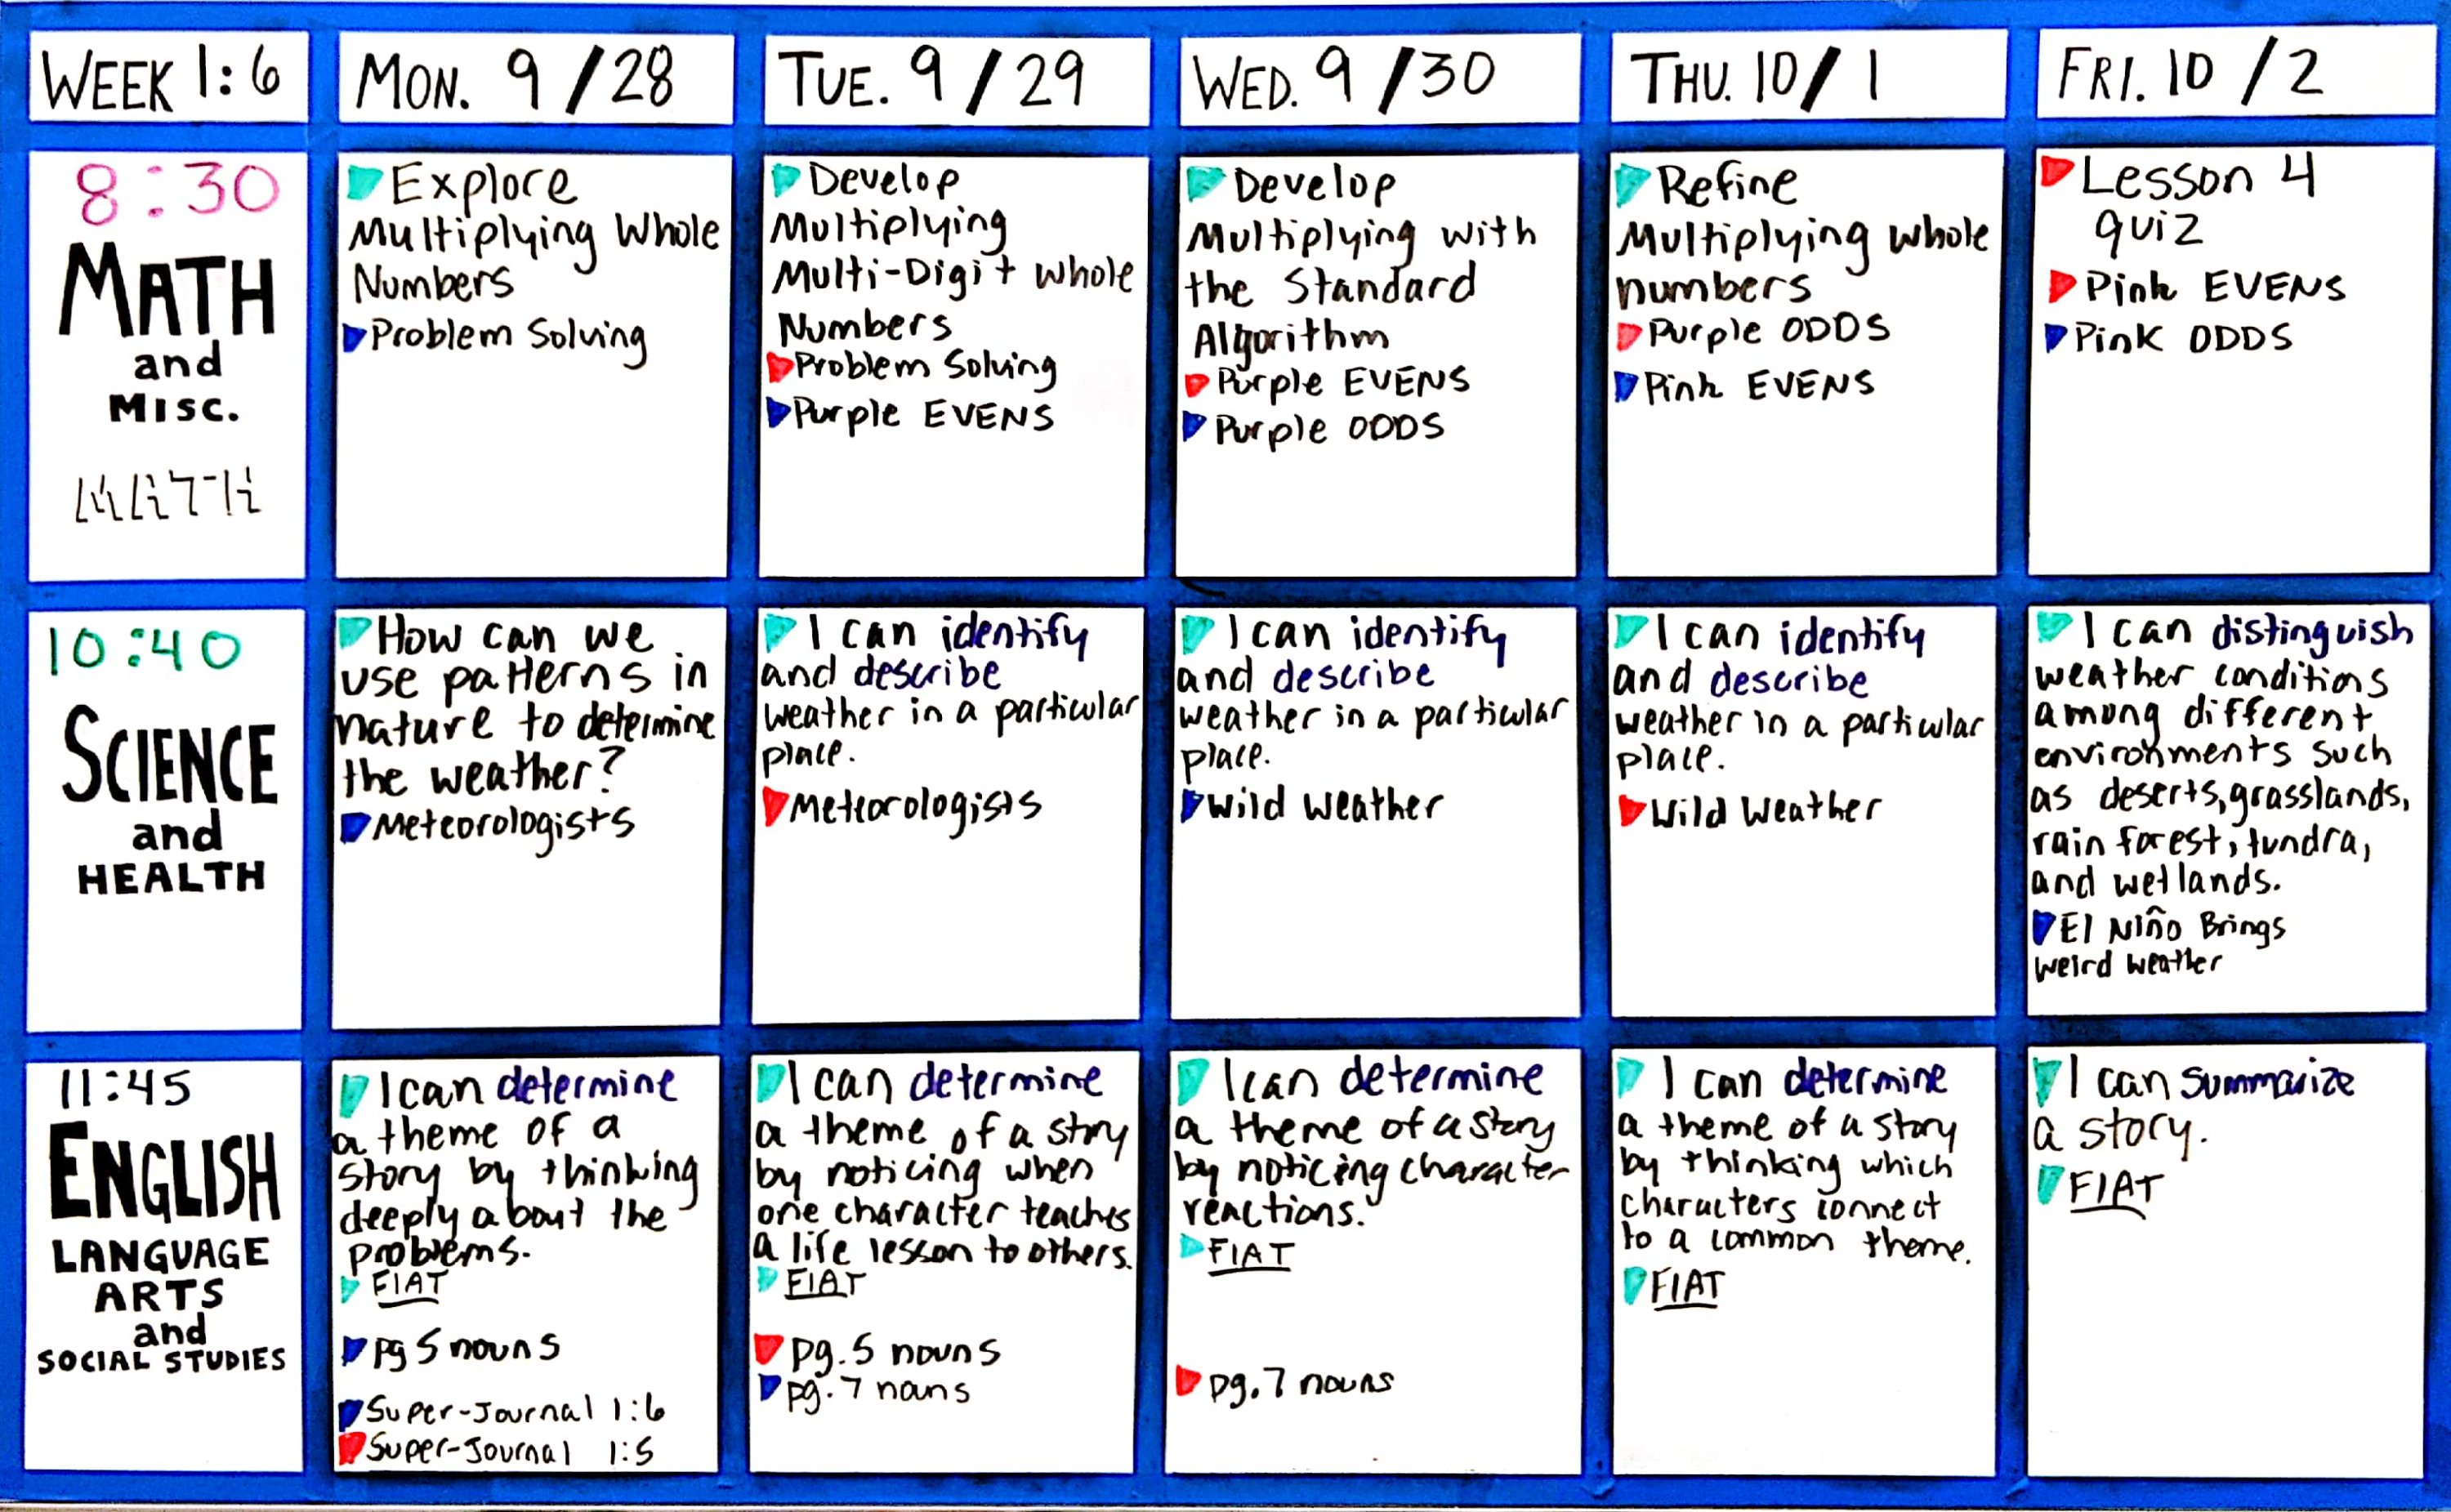 WEEK 1:6
MON. 9/28
TUE. 9/29
WED. 9/30
THU. 10/1
FRI. 10/2
8:30
MATH
and
MISC.
MATH
Explore
Multiplying Whole
Numbers
Problem Solving
Develop
Multiplying
Multi-Digit Whole
Numbers
Problem Solving
Purple EVENS
Develop
Multiplying with
the Standard
Algorithm
Purple EVENS
Purple ODDS
Refine
Multiplying whole
numbers
Purple ODDS
Pink EVENS
Lesson 4
quiz
Pink EVENS
Pink ODDS
10:40
SCIENCE
and
HEALTH
How can we
use patterns in
nature to determine
the weather?
Meteorologists
I can identify
and describe
weather in a particular
place.
Meteorologists
I can identify
and describe
weather in a particular
place.
Wild Weather
I can identify
and describe
weather in a particular
place.
Wild Weather
I can distinguish
weather conditions
among different
environments such
as deserts, grasslands,
rain forest, tundra,
and wetlands.
El Niño Brings
weird weather
11:45
ENGLISH
LANGUAGE
ARTS
and
SOCIAL STUDIES
I can determine
a theme of a
story by thinking
deeply about the
problems.
FIAT
pg 5 nouns
Super-Journal 1:6
Super-Journal 1:5
I can determine
a theme of a story
by noticing when
one character teaches
a life lesson to others.
FIAT
pg. 5 nouns
pg. 7 nouns
I can determine
a theme of a story
by noticing character
reactions.
FIAT
pg. 7 nouns
I can determine
a theme of a story
by thinking which
characters connect
to a common theme.
FIAT
I can summarize
a story.
FIAT